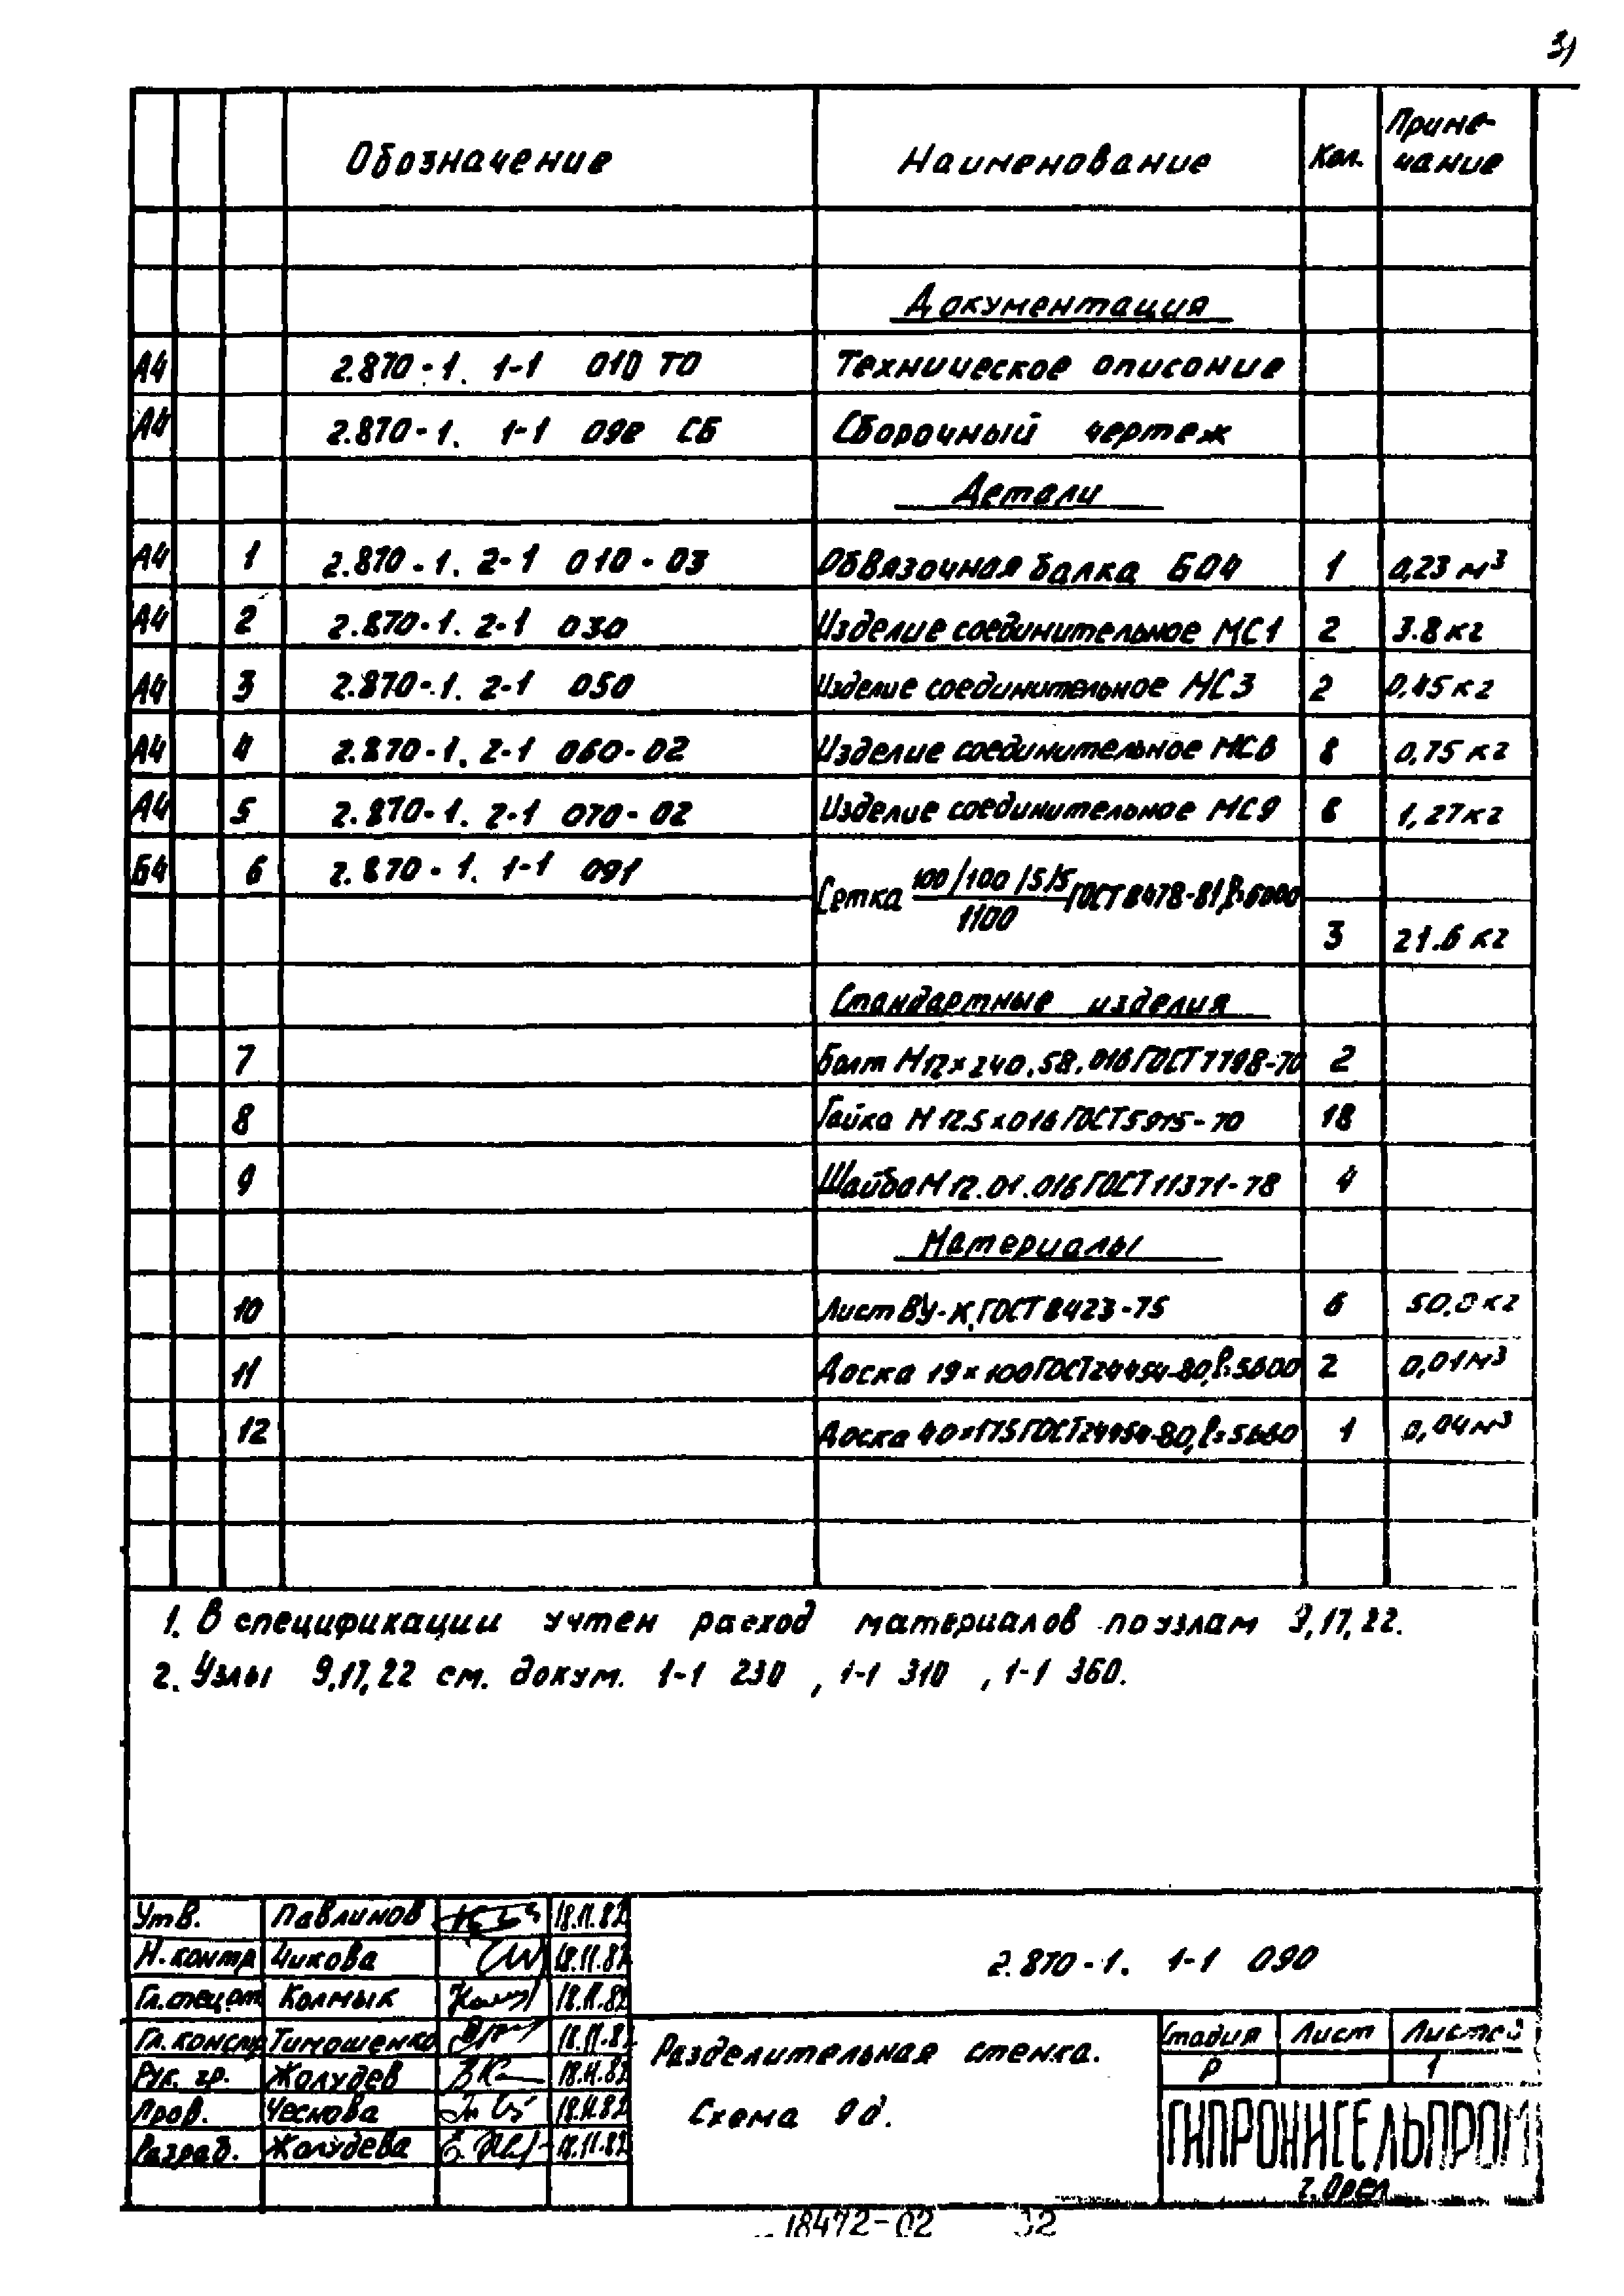 31
Обозначение Наименование Кол. Приме-
чание
Документация
А4 2.870-1. 1-1 010 ТО Техническое описание
А4 2.870-1. 1-1 090 СБ Сборочный чертеж
Детали
А4 1 2.870-1. 2-1 010-03 Обвязочная балка БО4 1 0,23 м³
А4 2 2.870-1. 2-1 030 Изделие соединительное МС1 2 3.8 кг
А4 3 2.870-1. 2-1 050 Изделие соединительное МС3 2 0,45 кг
А4 4 2.870-1. 2-1 060-02 Изделие соединительное МС6 8 0,75 кг
А4 5 2.870-1. 2-1 070-02 Изделие соединительное МС9 6 1,27 кг
Б4 6 2.870-1. 1-1 091 Сетка 100/100/5/5
1100 ГОСТ 8478-81, ℓ=6000
3 21.6 кг
Стандартные изделия
7 Болт М12×240.58.016 ГОСТ 7798-70 2
8 Гайка М12.5×016 ГОСТ 5915-70 18
9 Шайба М12.01.016 ГОСТ 11371-78 4
Материалы
10 Лист ВУ-К ГОСТ 8423-75 6 50,0 кг
11 Доска 19×100 ГОСТ 24454-80, ℓ=5600 2 0,01 м³
12 Доска 40×175 ГОСТ 24454-80, ℓ=5660 1 0,04 м³
1. В спецификации учтен расход материалов по узлам 9,17,22.
2. Узлы 9,17,22 см. докум. 1-1 230 , 1-1 310 , 1-1 360.
Утв. Павлинов 18.11.82
Н.контр Чикова 18.11.82
Гл.спец.от Колмык 18.11.82
Гл.констр Тимошенко 18.11.82
Рук. гр. Жолудев 18.11.82
Пров. Чеснова 18.11.82
Разраб. Жолудева 18.11.82
2.870-1. 1-1 090
Разделительная стенка.
Схема 9д.
Стадия Лист Листов
Р 1
ГИПРОНИСЕЛЬПРОМ
г. Орел
18472-02 32